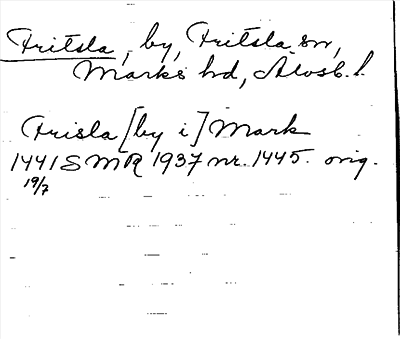 Fritsla, by, Fritsla sn,
Marks hd, Älvsb. l.
Frisla [by i] Mark
1441 SMR 1937 nr. 1445. orig.
19/7